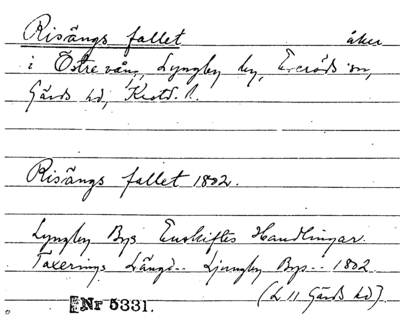 Risängs fallet åker
i Östre vång, Lyngby by, Everöds sn,
Gärds hd, Krstd. l.
Risängs fallet 1802.
Lyngby Bys Enskiftes Handlingar.
Taxerings Längd.. Ljungby Bys.. 1802
(L 11 Gärds hd)
Nr 5331.